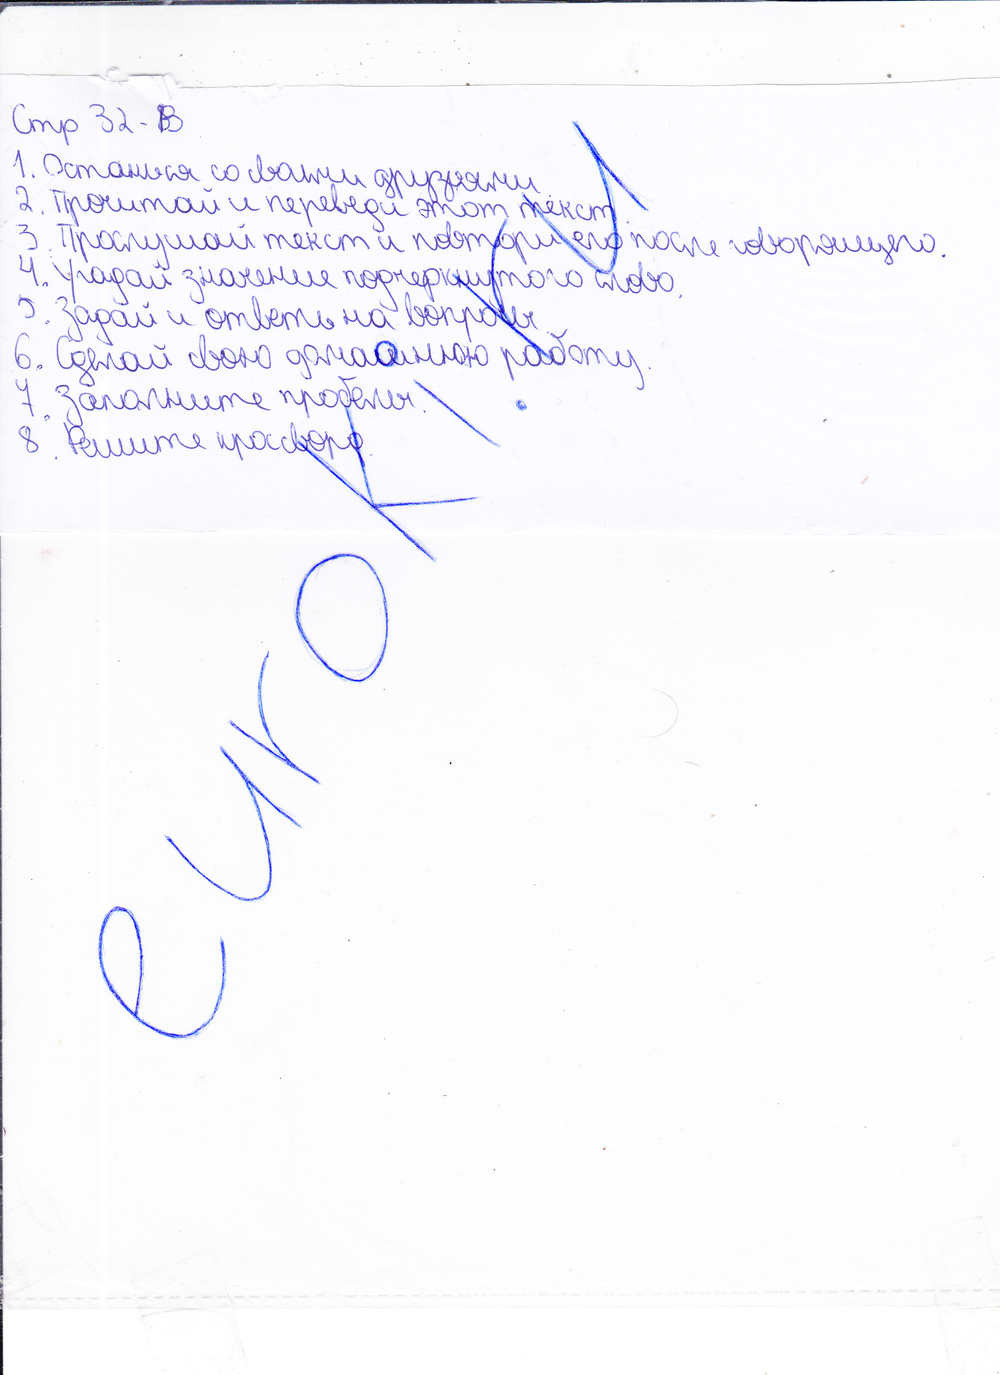 Стр 32-В
1. Останься со своими друзьями.
2. Прочитай и переведи этот текст.
3. Прослушай текст и повтори его после говорящего.
4. Угадай значение подчеркнутого слово.
5. Задай и ответь на вопросы.
6. Сделай свою домашнюю работу.
7. Заполните пробелы.
8. Решите кроссворд.
euroki.ru